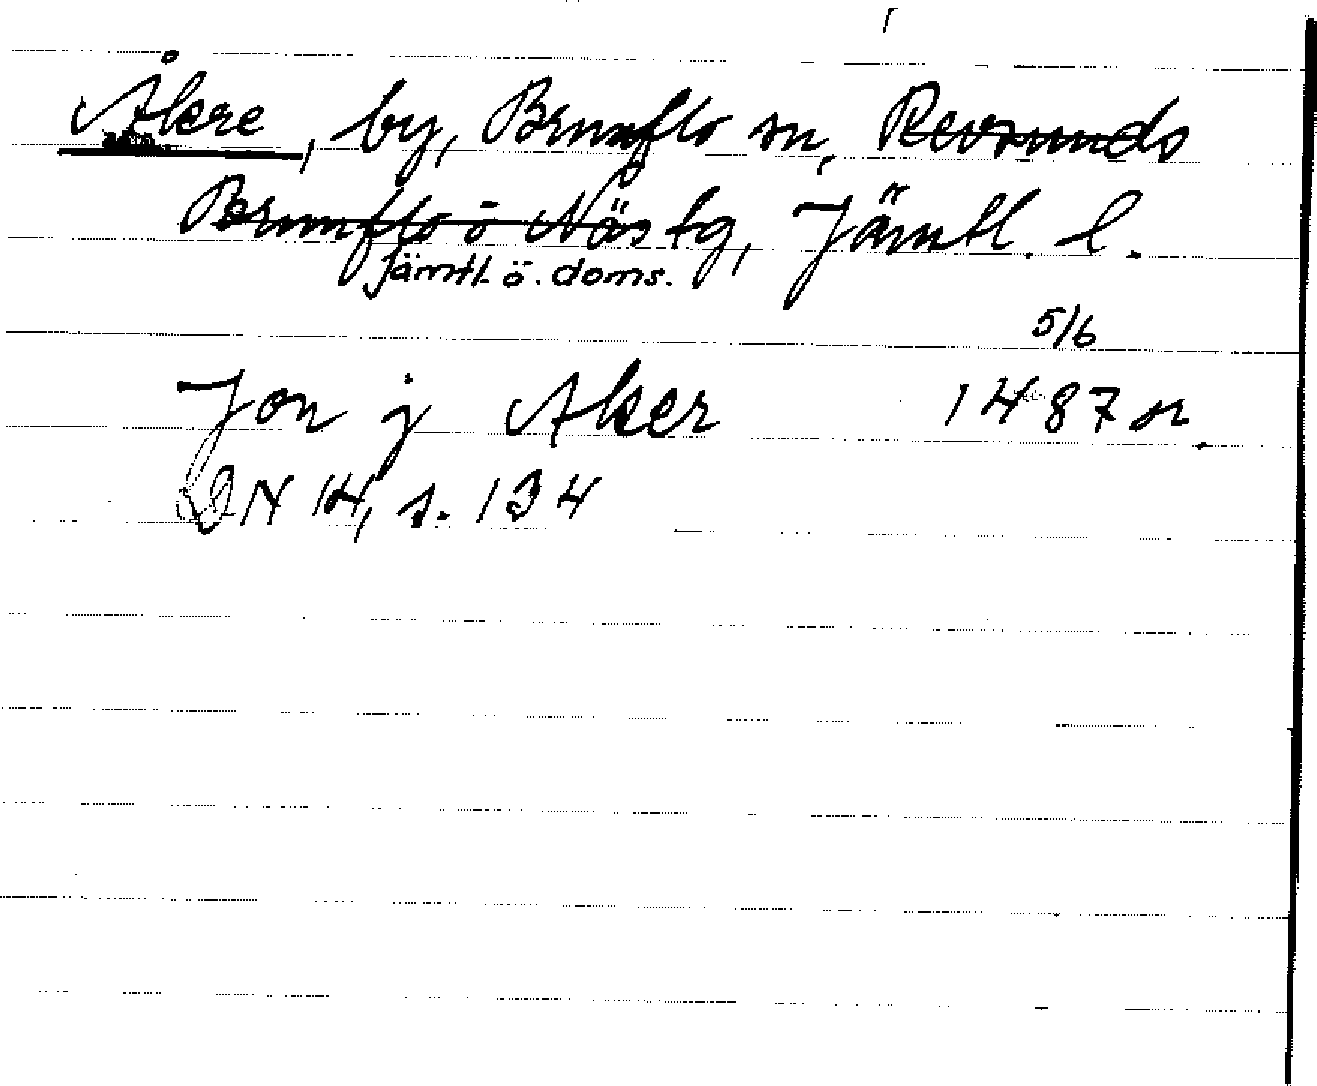 Åkre, by, Brunflo sn, Revsunds
Brunflo o Näs tg, Jämtl. l.
Jämtl. ö. doms.
5/6
Jon j Aker 1487 or.
DN 14, s. 134